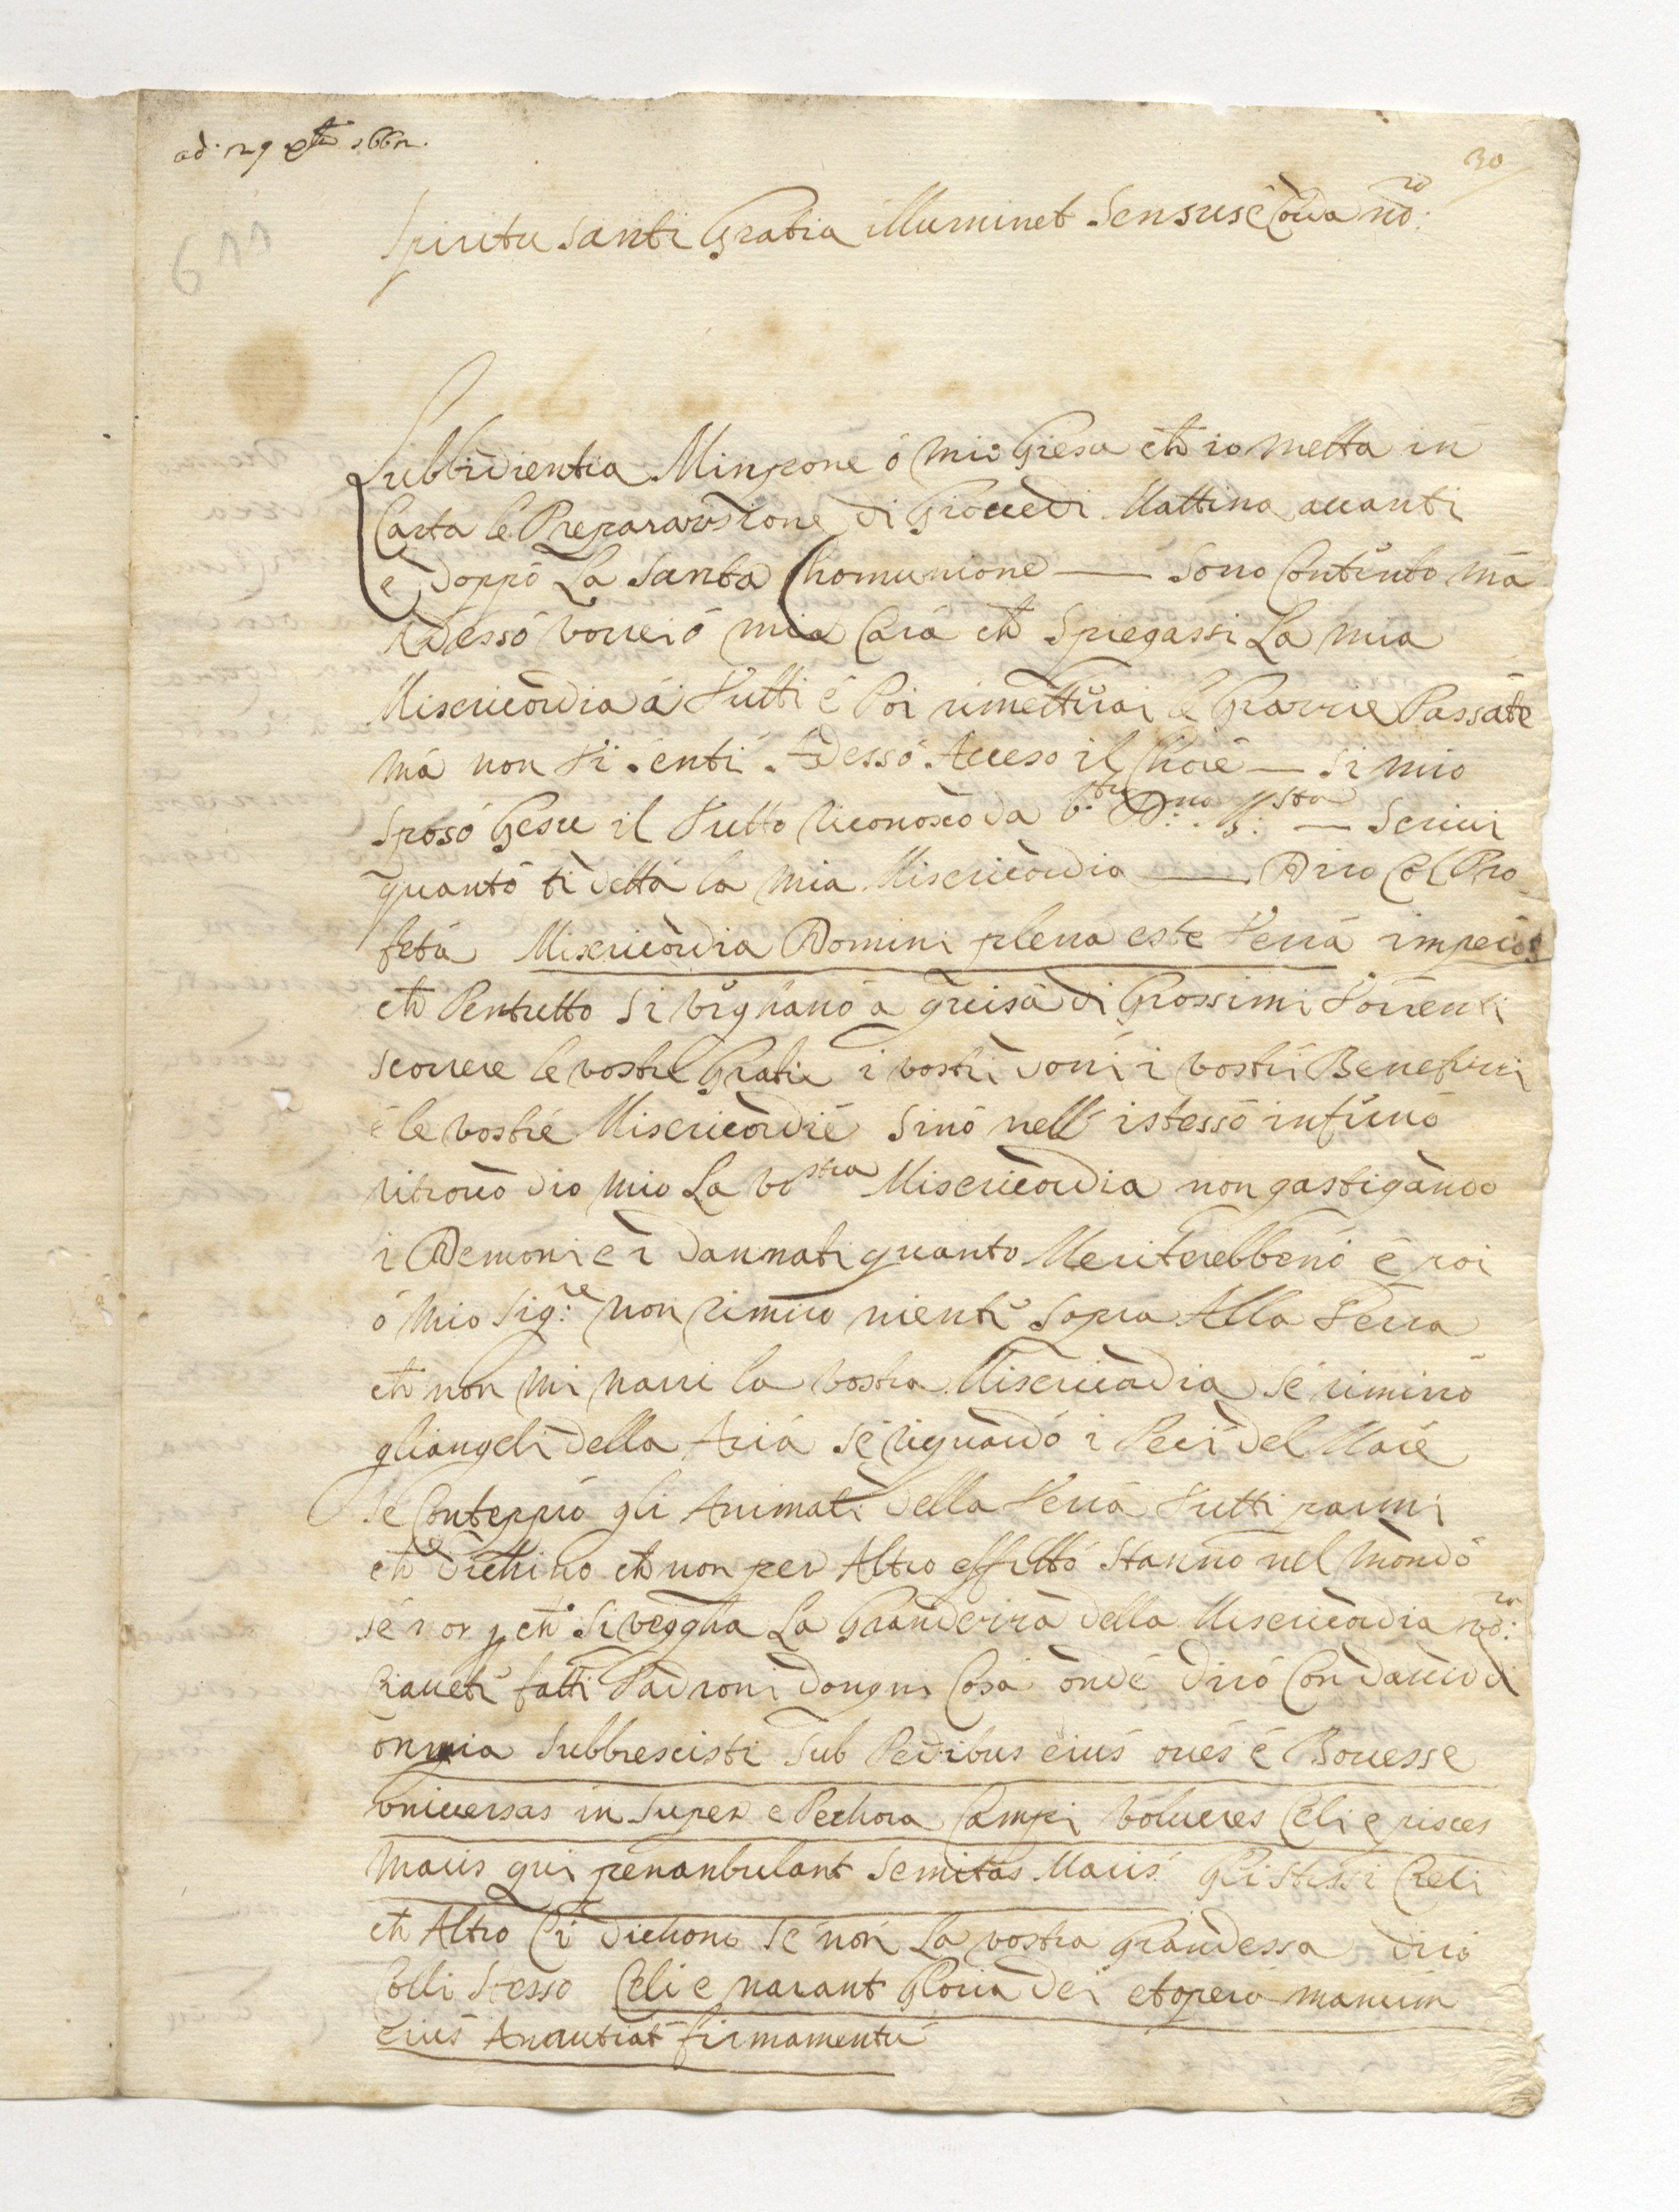 30
611
Spiritu Santi Gratia illuminet Sensus é Corda no:ro
Lubbidientia Minpone ó mio Giesu ch io metta in
Carta le di Giovedi Mattina avanti
e doppó La Santa Chomunione — Sono Contento má
Adessó vorreió mia Cará ch Spiegassi La mia
Misericordia á Tutti é Poi rimetterai le Grazzie Passate
má non ti senti Adessó Acceso il Choré — Si mio
Sposó Gesu il Tutto riconosco da — Scrivi
quantó ti dettá la mia Misericordia — Diro Col Pro
fetá Misericordia Domini plena este Terrá imperó
ch Pertutto Si veghano á guisá di Grossimi Torrenti
scorrere le vostre Gratie i vostri doni i vostri Benefizzi
é le vostré Misericordié Sinó nell istessó infernó
ritrovo dio mio La vostra Misericordia non gastigando
i Demoni e i dannati quanto Meriterebbenó é poi
ó mio Sig:re non rimiro niente Sopra Alla Terra
ch non mi narri la vostra Misericordia sé rimiró
gliangeli della Ariá sé riguardó i Pesci del Maré
sé Contenpró gli Animali della Terrá Tutti parmi
ch dichino ch non per Altro effettó Stanno nel mondó
sé non p ch Si vegghа La Grandezzá della Misericordia vo:ra
ci avete fatti Padroni dongni Cosá onde diró Con david
onmia Subbrescisti Sub Pedibus eius ovés é Bovesse
vniversas in Super e Pechora Campi Volucres Celi e pisces
Maris qui penanbulant Semitas Maris Gli stessi Cieli
ch Altro Ci dichono sé nón La vostra grandessa diró
Colli Stesso Celi e narant Gloria Dei et opera manum
eius Anuntiat firmamentu